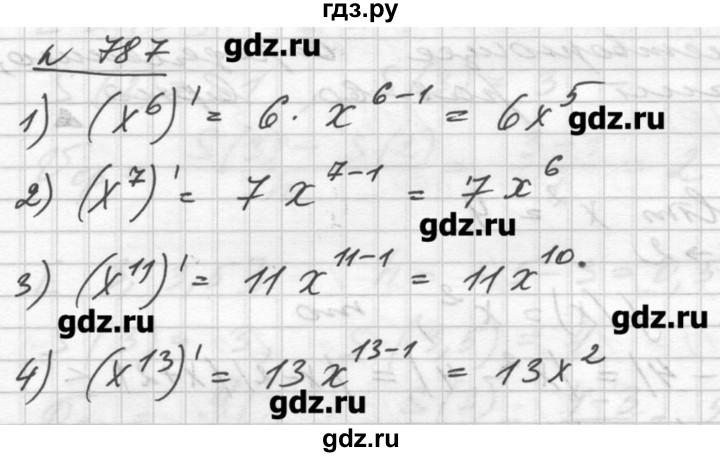 гдз.ру
№ 787
gdz.ru
1) (x⁶)' = 6 · x⁶⁻¹ = 6x⁵
gdz.ru
2) (x⁷)' = 7x⁷⁻¹ = 7x⁶
gdz.ru
3) (x¹¹)' = 11x¹¹⁻¹ = 11x¹⁰.
gdz.ru gdz.ru
4) (x¹³)' = 13x¹³⁻¹ = 13x²
gdz.ru
gdz.ru